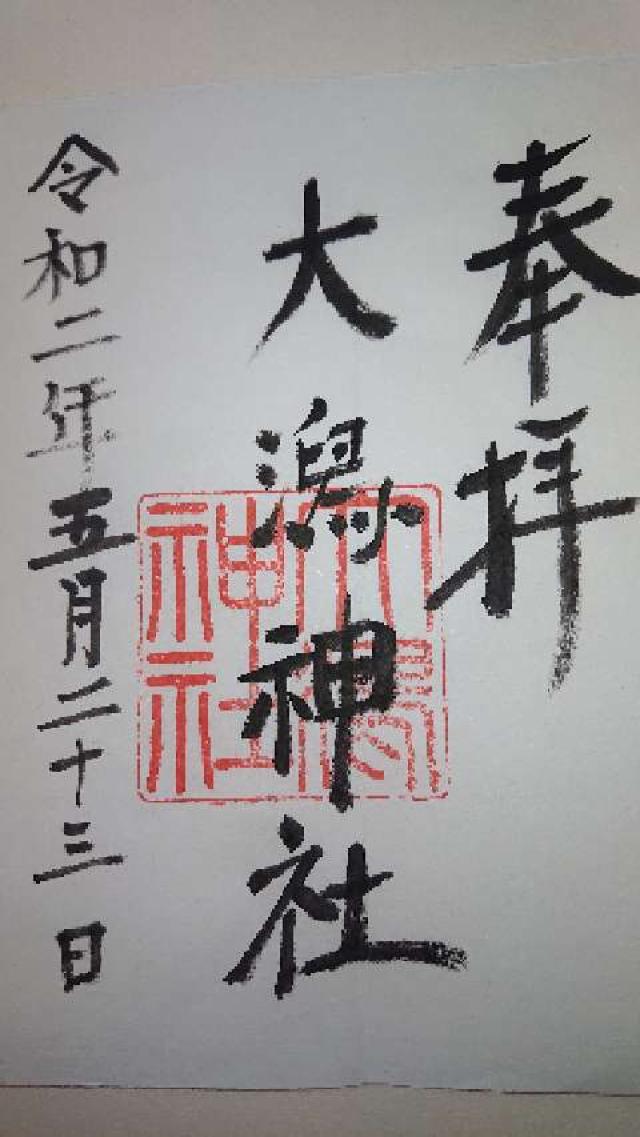 奉拝
大潟神社
令和二年五月二十三日
大潟神社